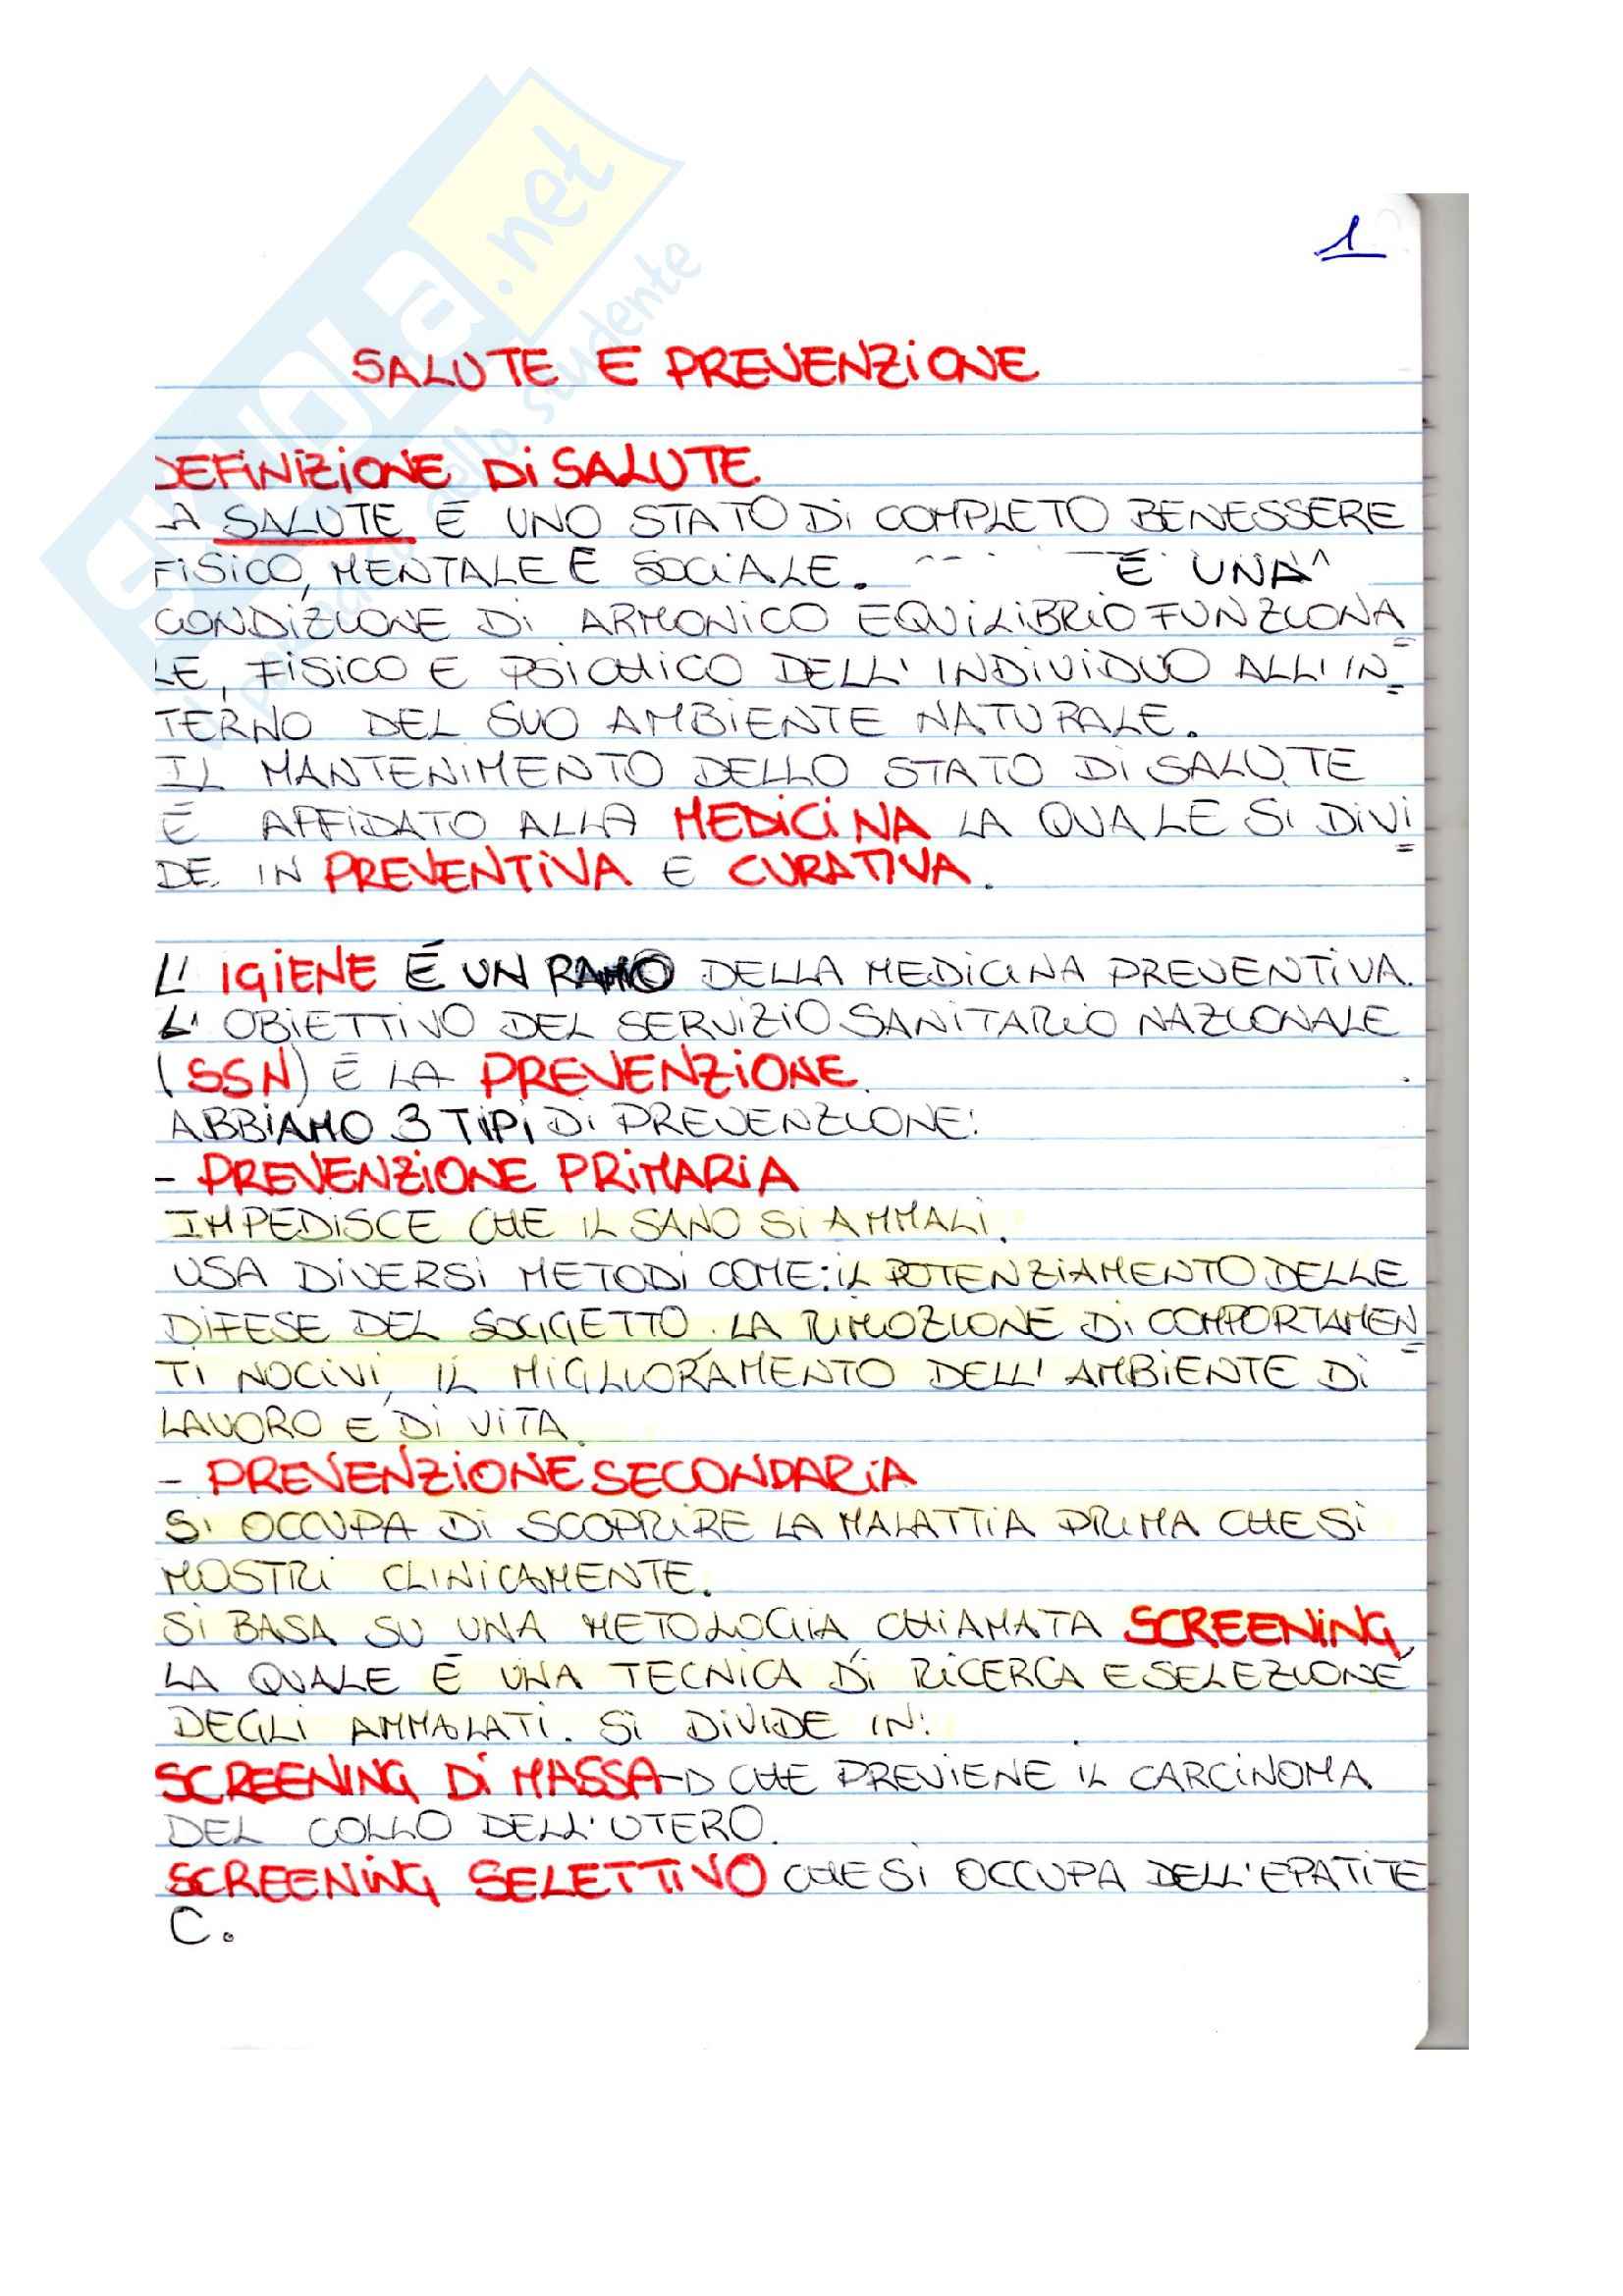 1
SKUOLA.net
il paradiso dello studente
SALUTE E PREVENZIONE
DEFINIZIONE DI SALUTE
LA SALUTE È UNO STATO DI COMPLETO BENESSERE
FISICO, MENTALE E SOCIALE. È UNA
CONDIZIONE DI ARMONICO EQUILIBRIO FUNZIONA=
LE, FISICO E PSICHICO DELL'INDIVIDUO ALL'IN=
TERNO DEL SUO AMBIENTE NATURALE.
IL MANTENIMENTO DELLO STATO DI SALUTE
È AFFIDATO ALLA MEDICINA LA QUALE SI DIVI=
DE IN PREVENTIVA E CURATIVA.
L'IGIENE È UN RAMO DELLA MEDICINA PREVENTIVA.
L'OBIETTIVO DEL SERVIZIO SANITARIO NAZIONALE
(SSN) È LA PREVENZIONE.
ABBIAMO 3 TIPI DI PREVENZIONE:
- PREVENZIONE PRIMARIA
IMPEDISCE CHE IL SANO SI AMMALI.
USA DIVERSI METODI COME: IL POTENZIAMENTO DELLE
DIFESE DEL SOGGETTO. LA RIMOZIONE DI COMPORTAMEN=
TI NOCIVI, IL MIGLIORAMENTO DELL'AMBIENTE DI
LAVORO E DI VITA.
- PREVENZIONE SECONDARIA
SI OCCUPA DI SCOPRIRE LA MALATTIA PRIMA CHE SI
MOSTRI CLINICAMENTE.
SI BASA SU UNA METOLOGIA CHIAMATA SCREENING,
LA QUALE È UNA TECNICA DI RICERCA E SELEZIONE
DEGLI AMMALATI. SI DIVIDE IN:
SCREENING DI MASSA → CHE PREVIENE IL CARCINOMA
DEL COLLO DELL'UTERO.
SCREENING SELETTIVO CHE SI OCCUPA DELL'EPATITE
C.